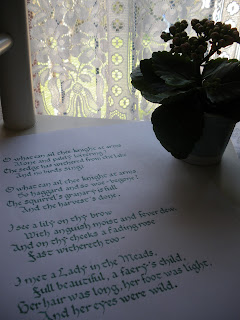 O what can ail thee knight at arms
Alone and palely loitering?
The sedge has withered from the lake
And no birds sing!
O what can ail thee knight at arms
So haggard and so woe begone?
The squirrel's granary is full
And the harvest's done.
I see a lily on thy brow
With anguish moist and fever dew,
And on thy cheeks a fading rose
Fast withereth too –
I met a Lady in the Meads,
Full beautiful, a faery's child,
Her hair was long, her foot was light,
And her eyes were wild.